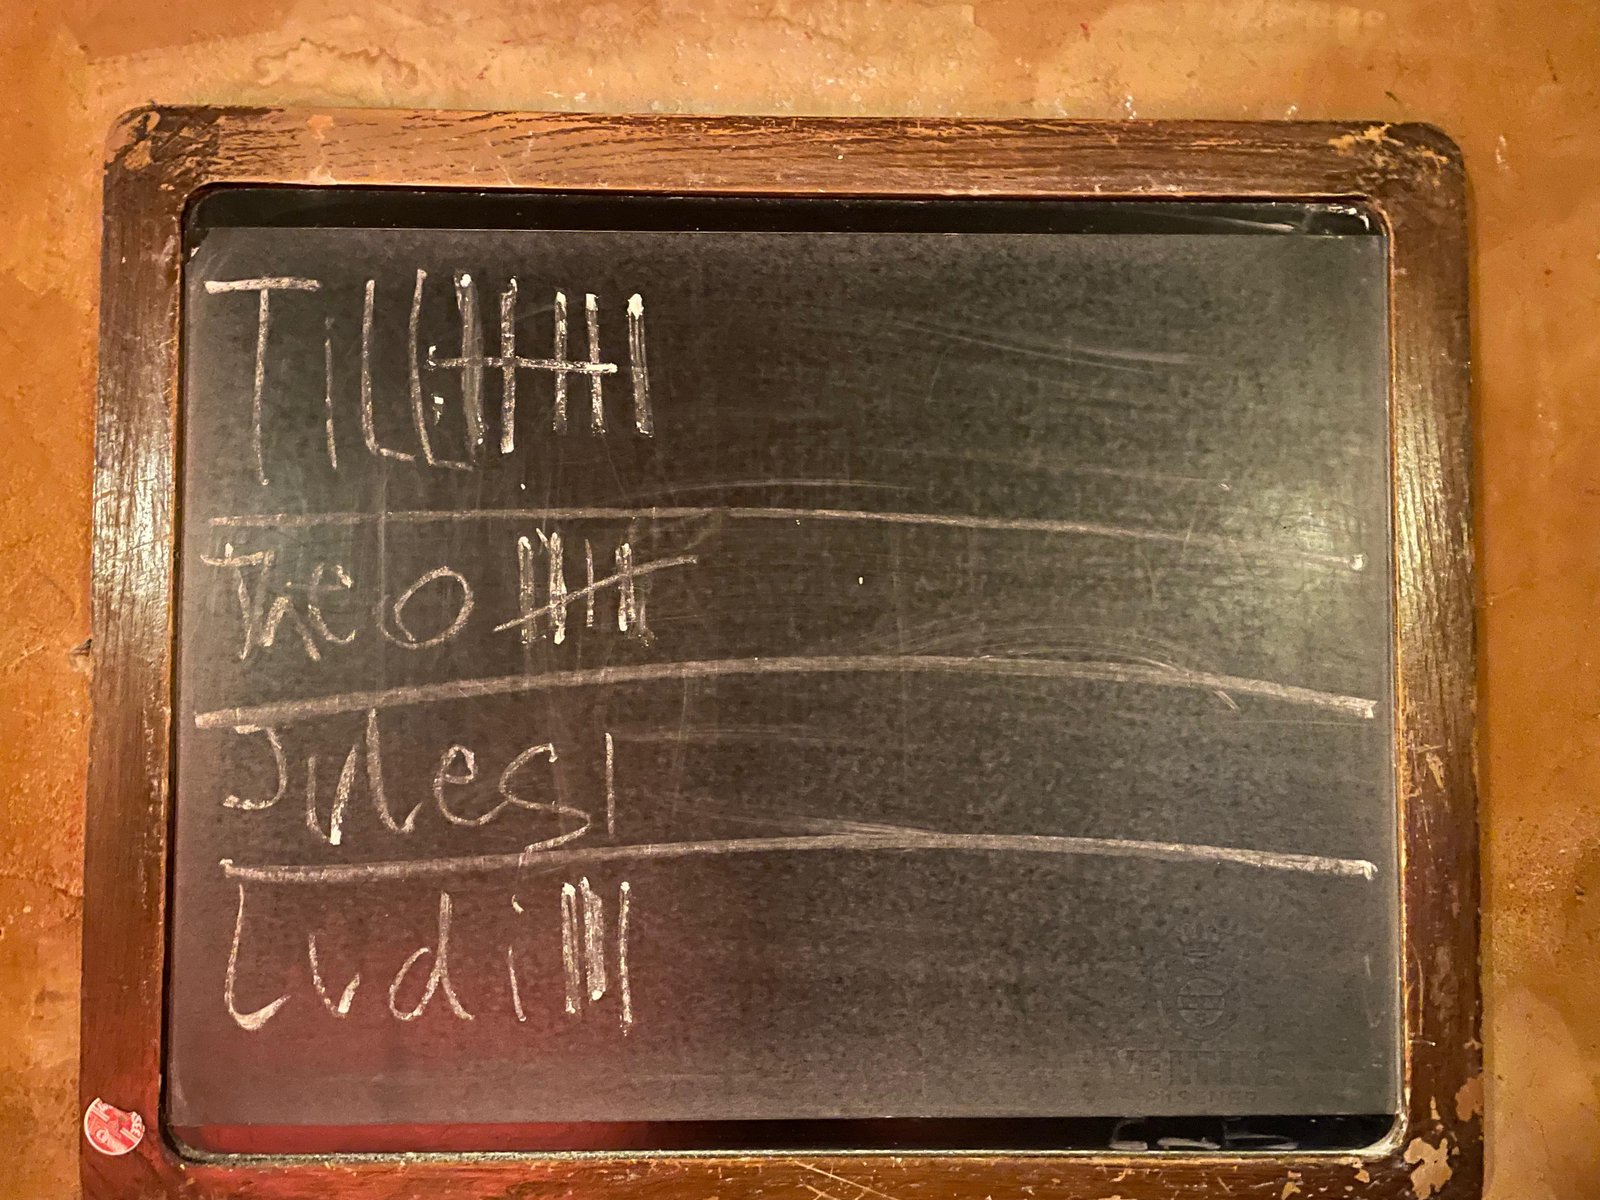 Till 𝍸 |
Theo 𝍸
Jules |
Ludi |||
PILSENER